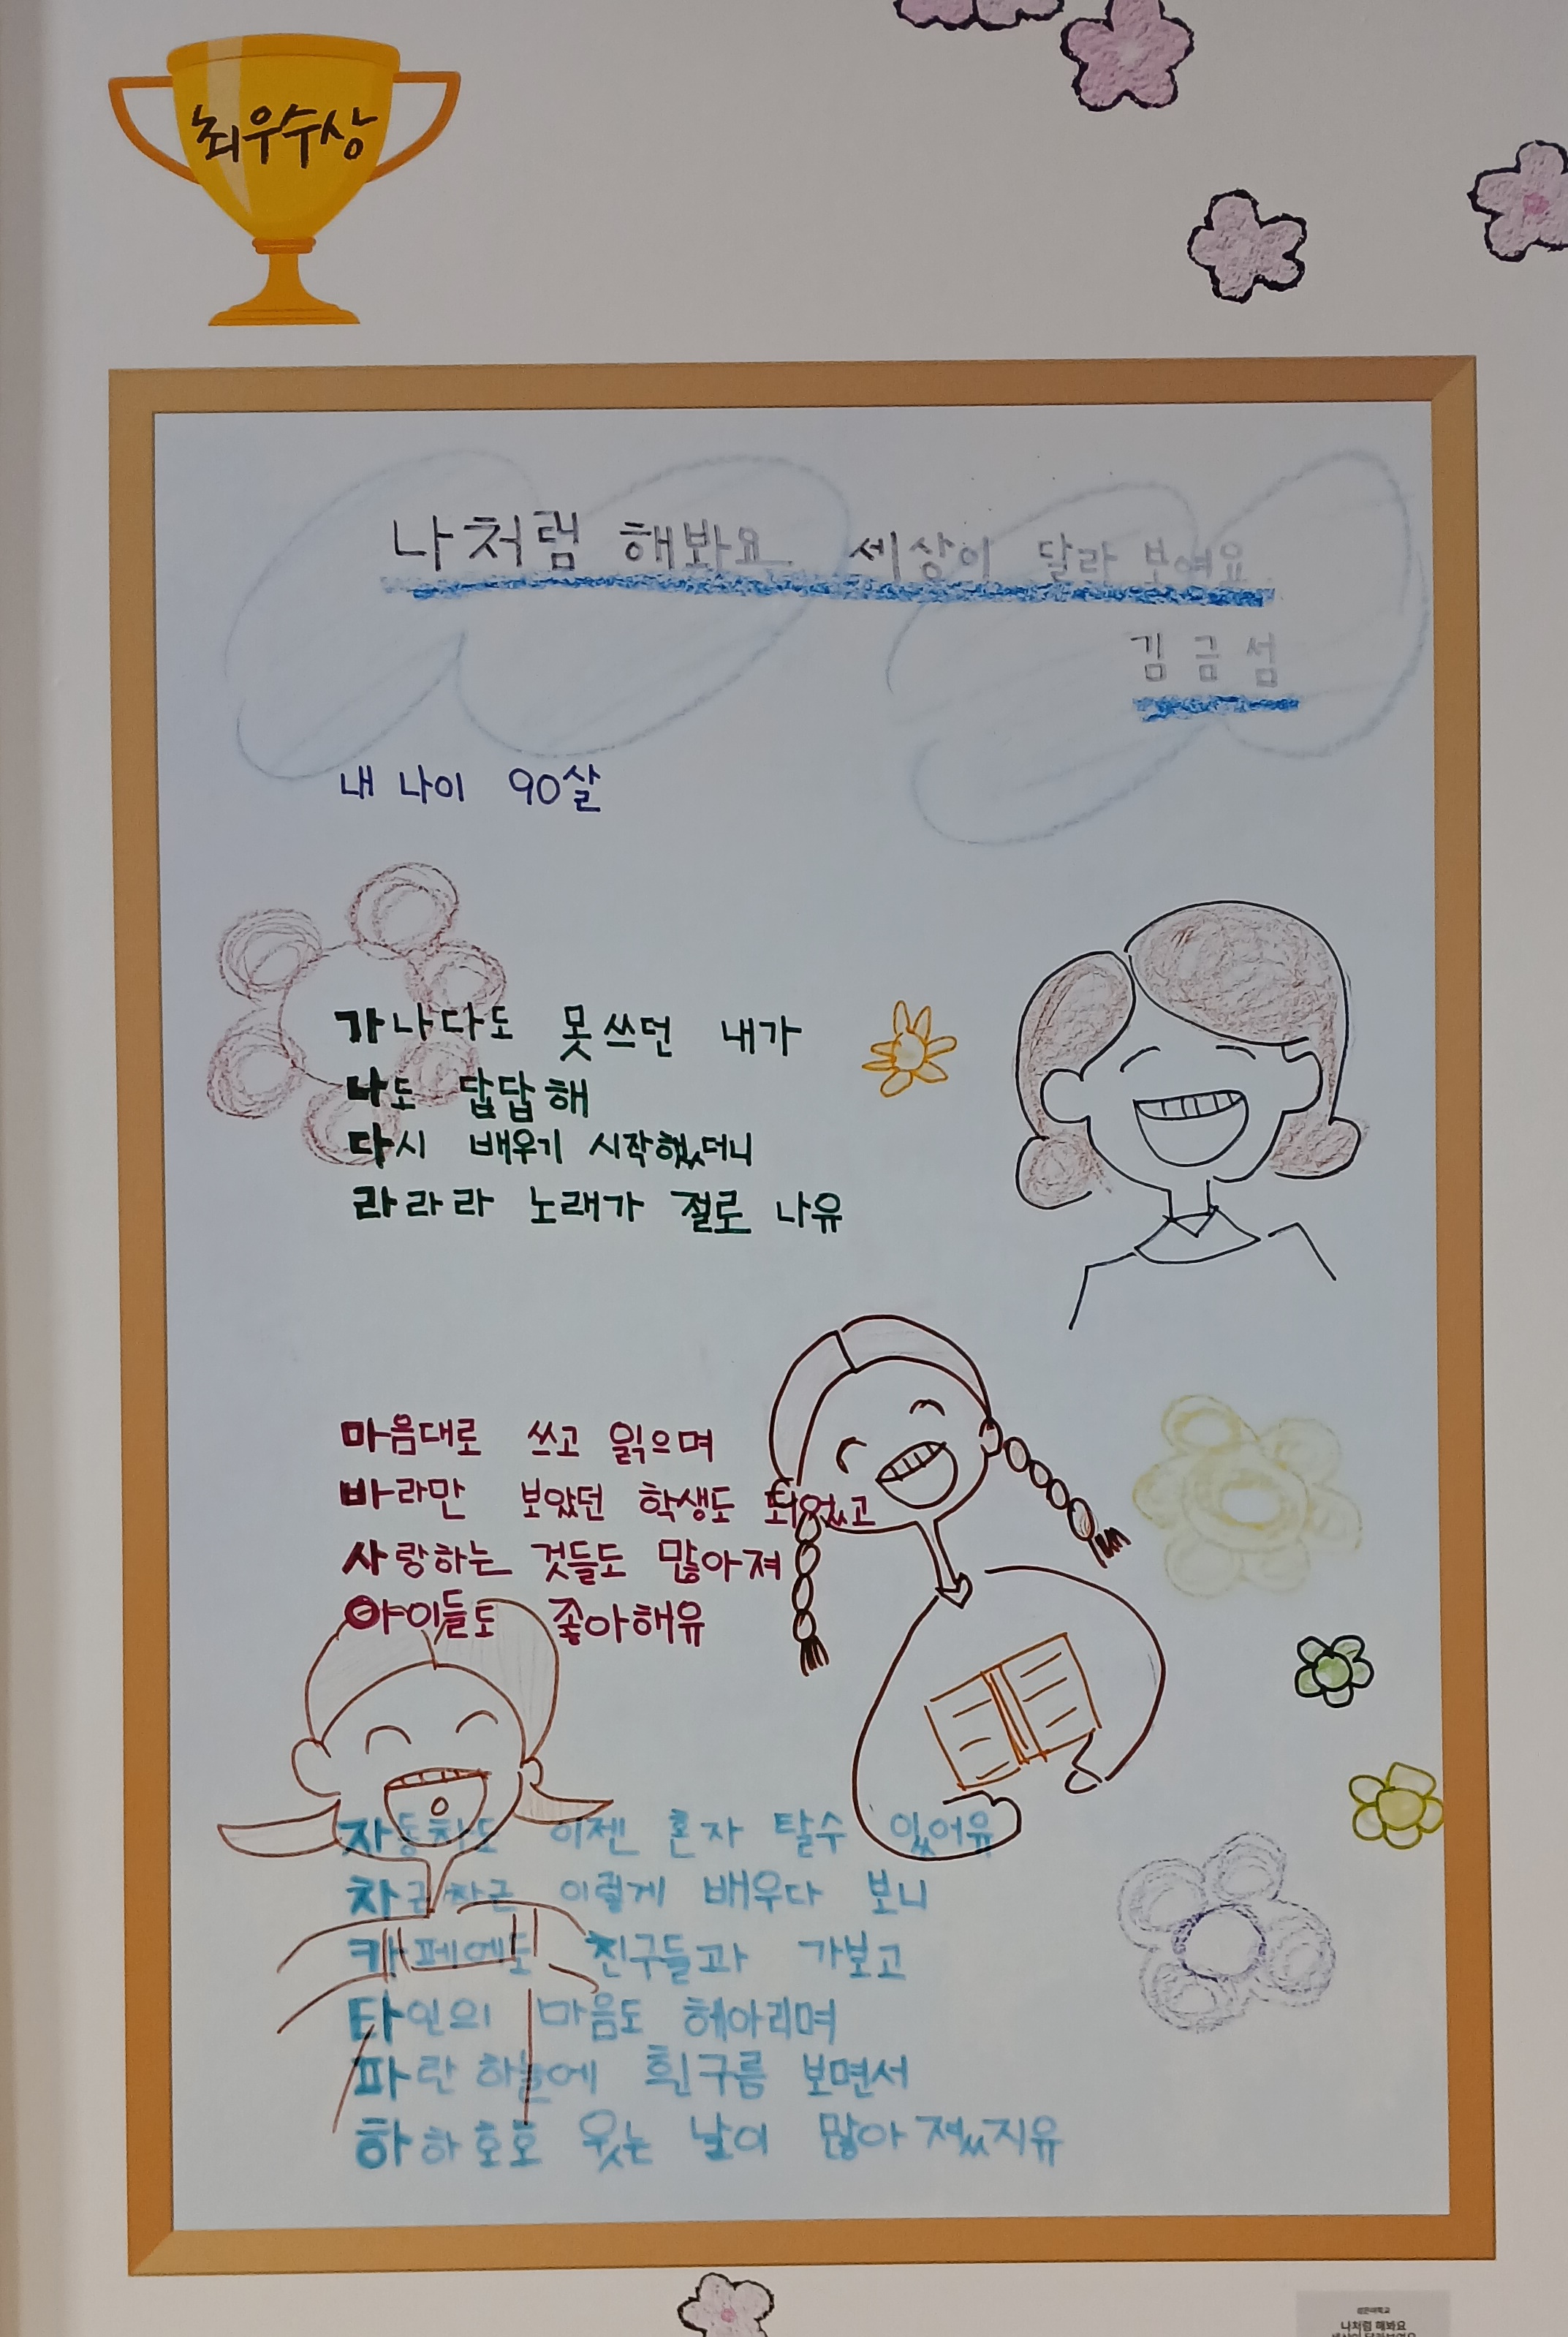 최우수상
나처럼 해봐요 세상이 달라 보여요
김금섬
내 나이 90살
가나다도 못쓰던 내가
나도 답답해
다시 배우기 시작했더니
라라라 노래가 절로 나유
마음대로 쓰고 읽으며
바라만 보았던 학생도 되었고
사랑하는 것들도 많아져
아이들도 좋아해유
자동차도 이젠 혼자 탈수 있어유
차근차근 이렇게 배우다 보니
카페에도 친구들과 가보고
타인의 마음도 헤아리며
파란 하늘에 흰구름 보면서
하하호호 웃는 날이 많아졌지유
나처럼 해봐요